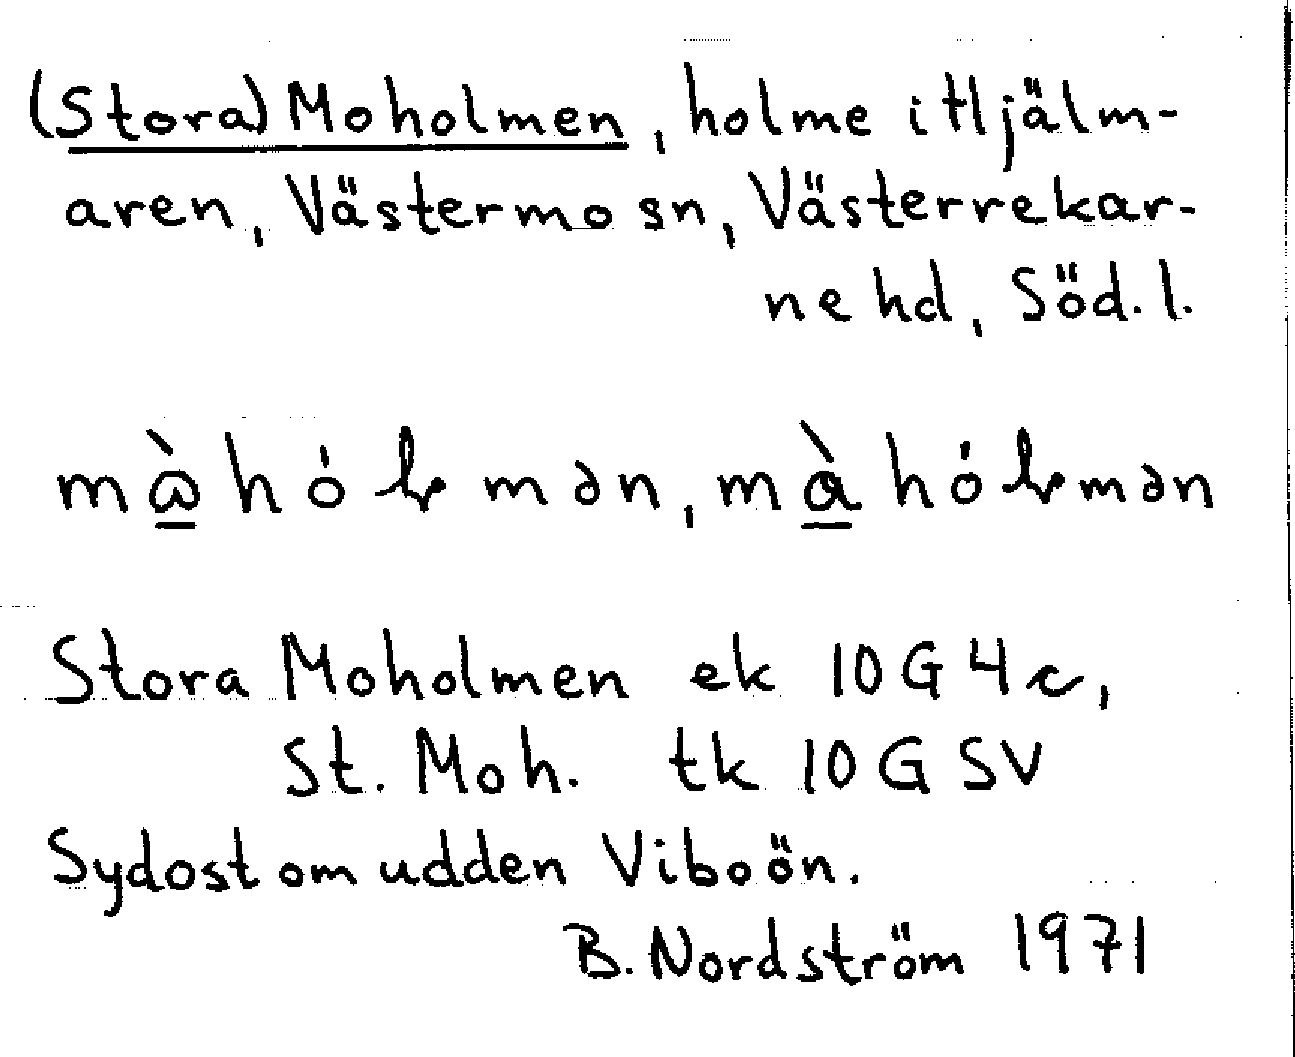 (Stora) Moholmen, holme i Hjälm-
aren, Västermo sn, Västerrekar-
ne hd, Söd. l.
Stora Moholmen ek 10G4c,
St. Moh. tk 10G SV
Sydost om udden Viboön.
B. Nordström 1971